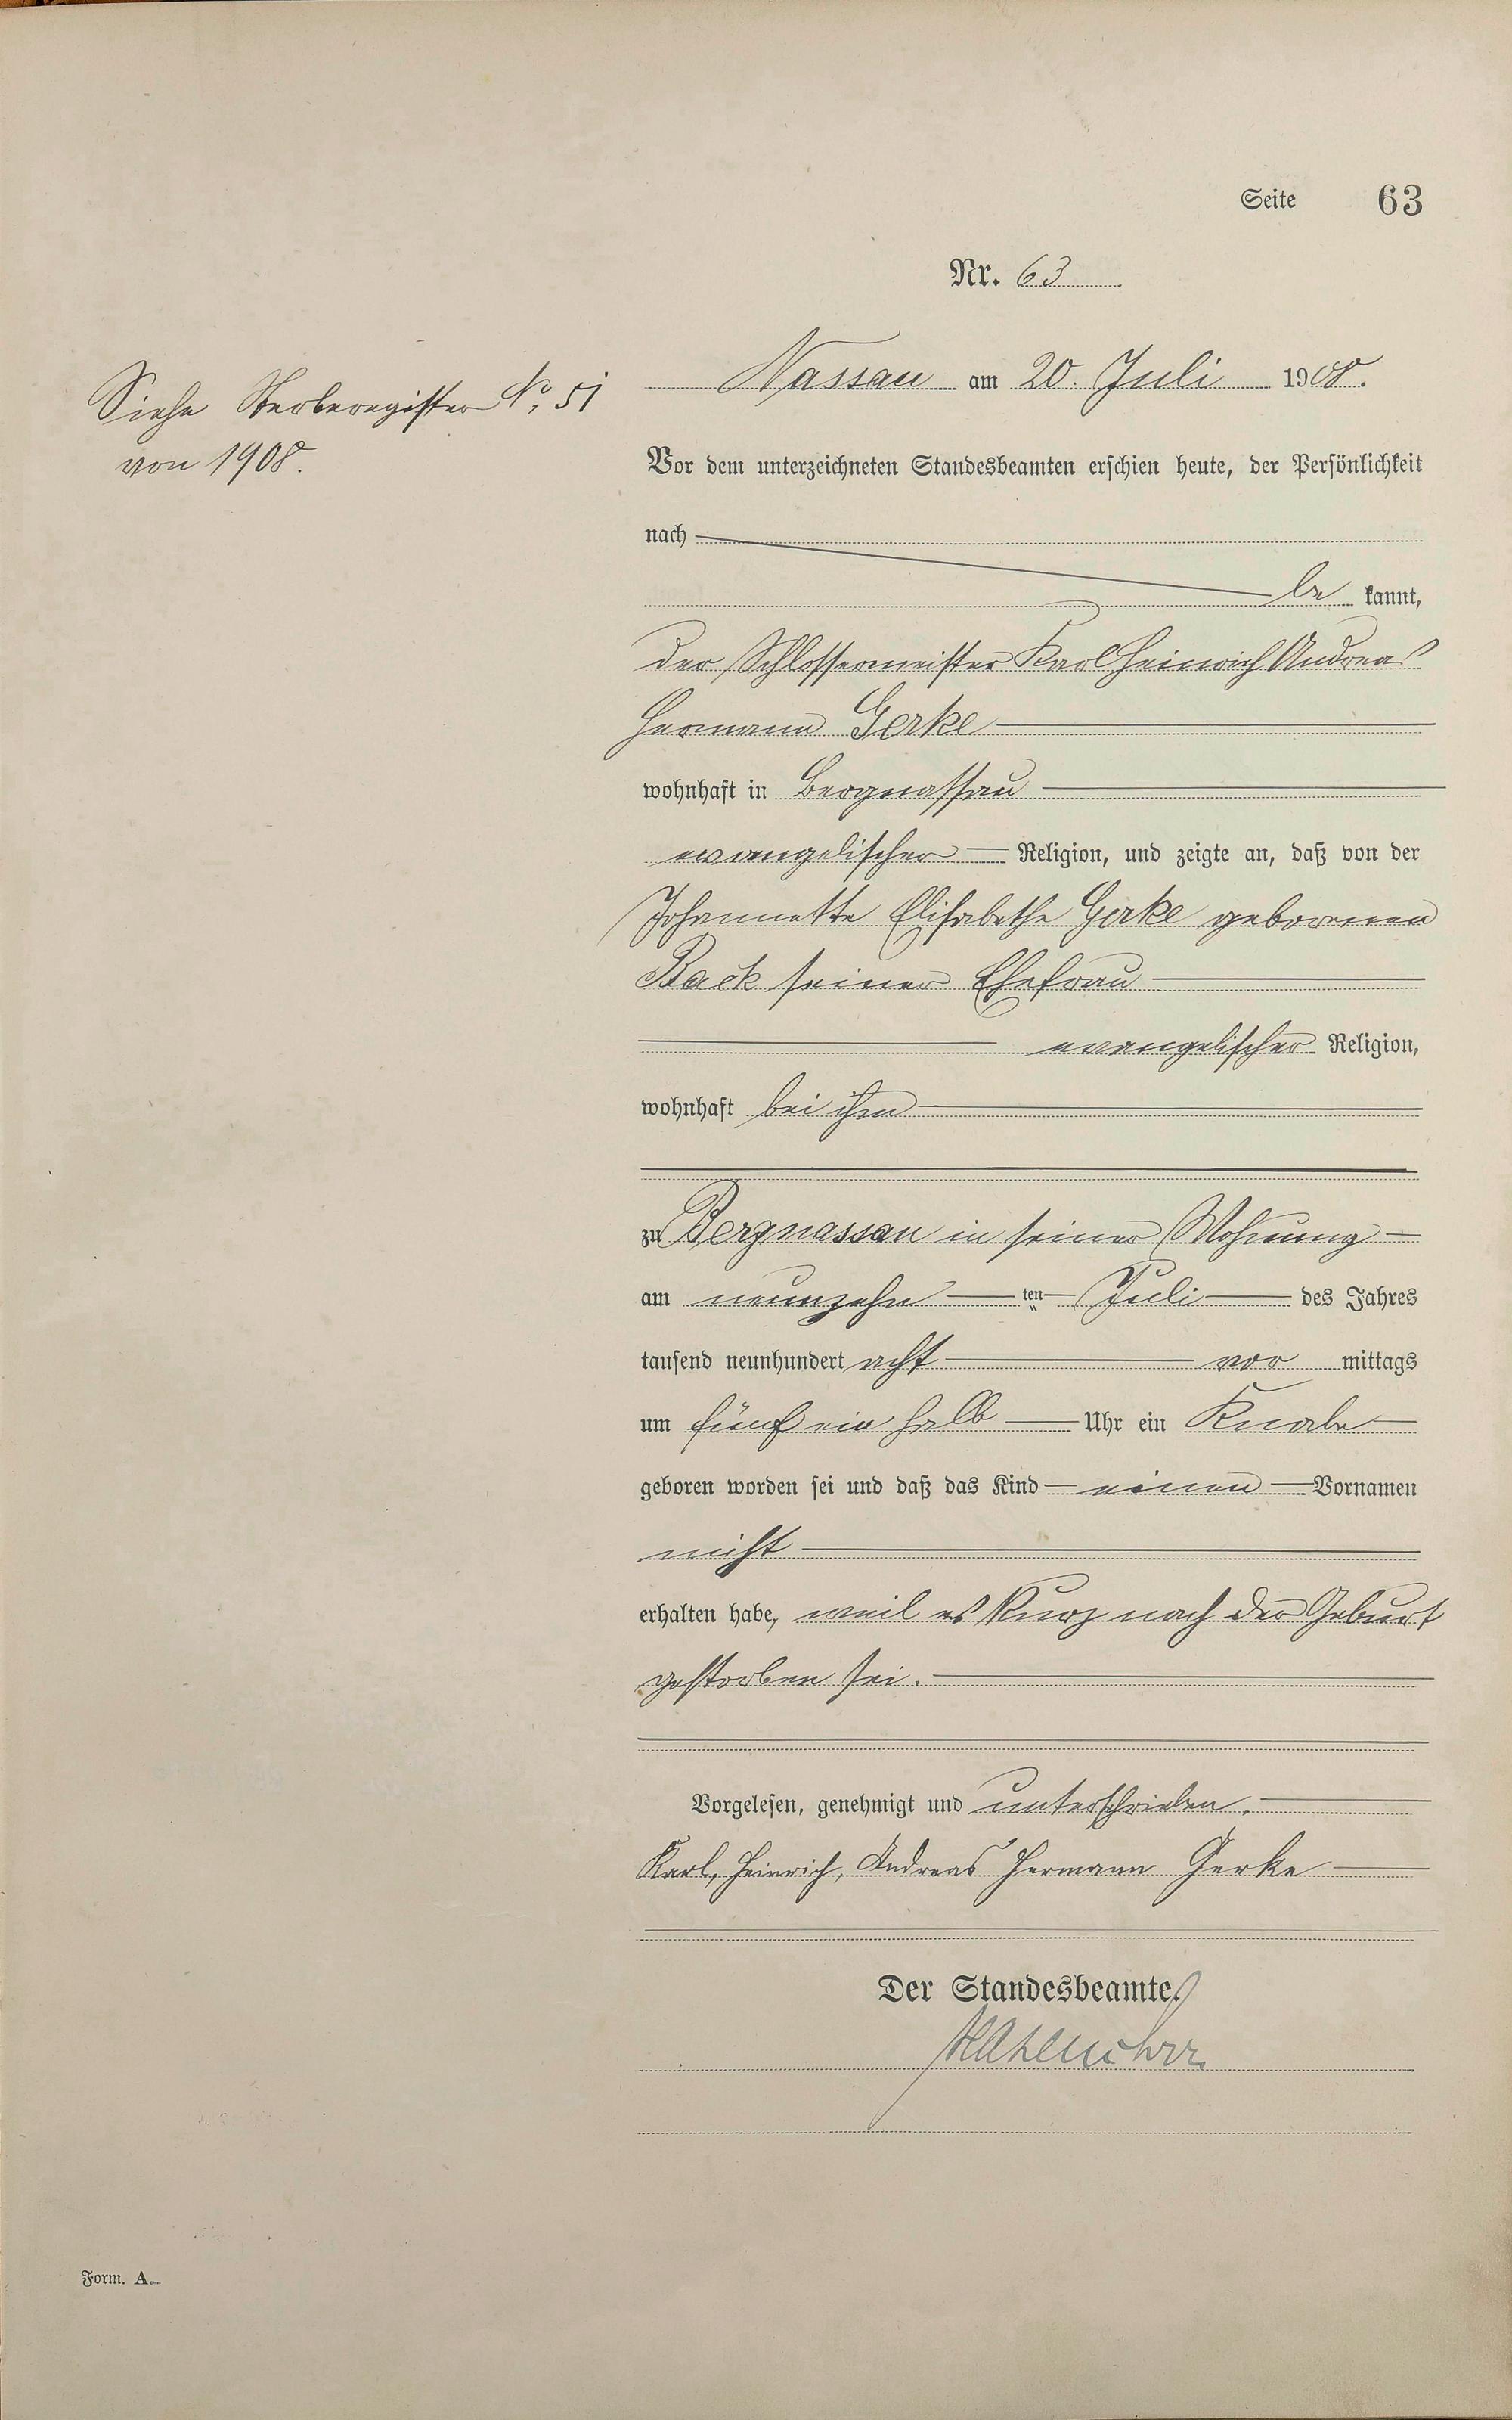 Seite 63
Nr. 63
Siehe Sterberegister No. 51
von 1908.
Nassau am 20. Juli 1908.
Vor dem unterzeichneten Standesbeamten erschien heute, der Persönlichkeit
nach
be kannt,
der Schlossermeister Karl Heinrich Andreas
Hermann Gerke
wohnhaft in Bergnassau
evangelischer Religion, und zeigte an, daß von der
Johannette Elisabethe Gerke geborenen
Back seiner Ehefrau
evangelischer Religion,
wohnhaft bei ihm
zu Bergnassau in seiner Wohnung
am neunzehn ten Juli des Jahres
tausend neunhundert acht vor mittags
um fünf ein halb Uhr ein Knabe
geboren worden sei und daß das Kind einen Vornamen
nicht
erhalten habe, weil es kurz nach der Geburt
gestorben sei.
Vorgelesen, genehmigt und unterschrieben.
Karl, Heinrich, Andreas Hermann Gerke
Der Standesbeamte.
Form. A.